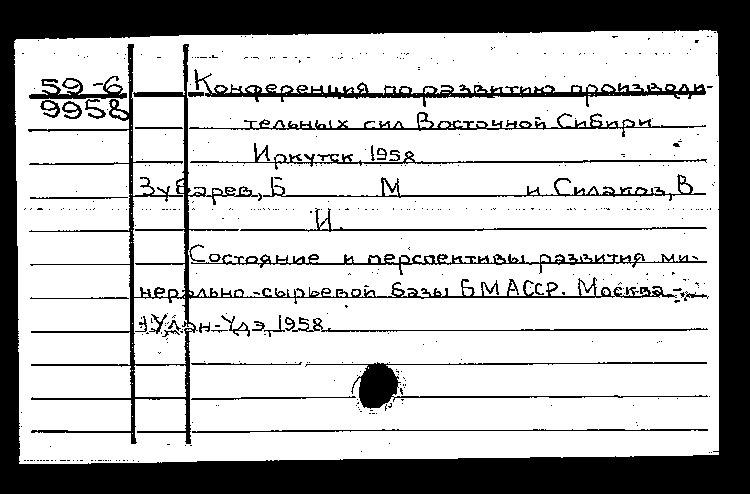 59-6
9958
Конференция по развитию производи-
тельных сил Восточной Сибири
Иркутск, 1958
Зубарев, Б М и Силаков, В
И.
Состояние и перспективы развития ми-
нерально-сырьевой базы БМАССР. Москва-
Улан-Удэ, 1958.